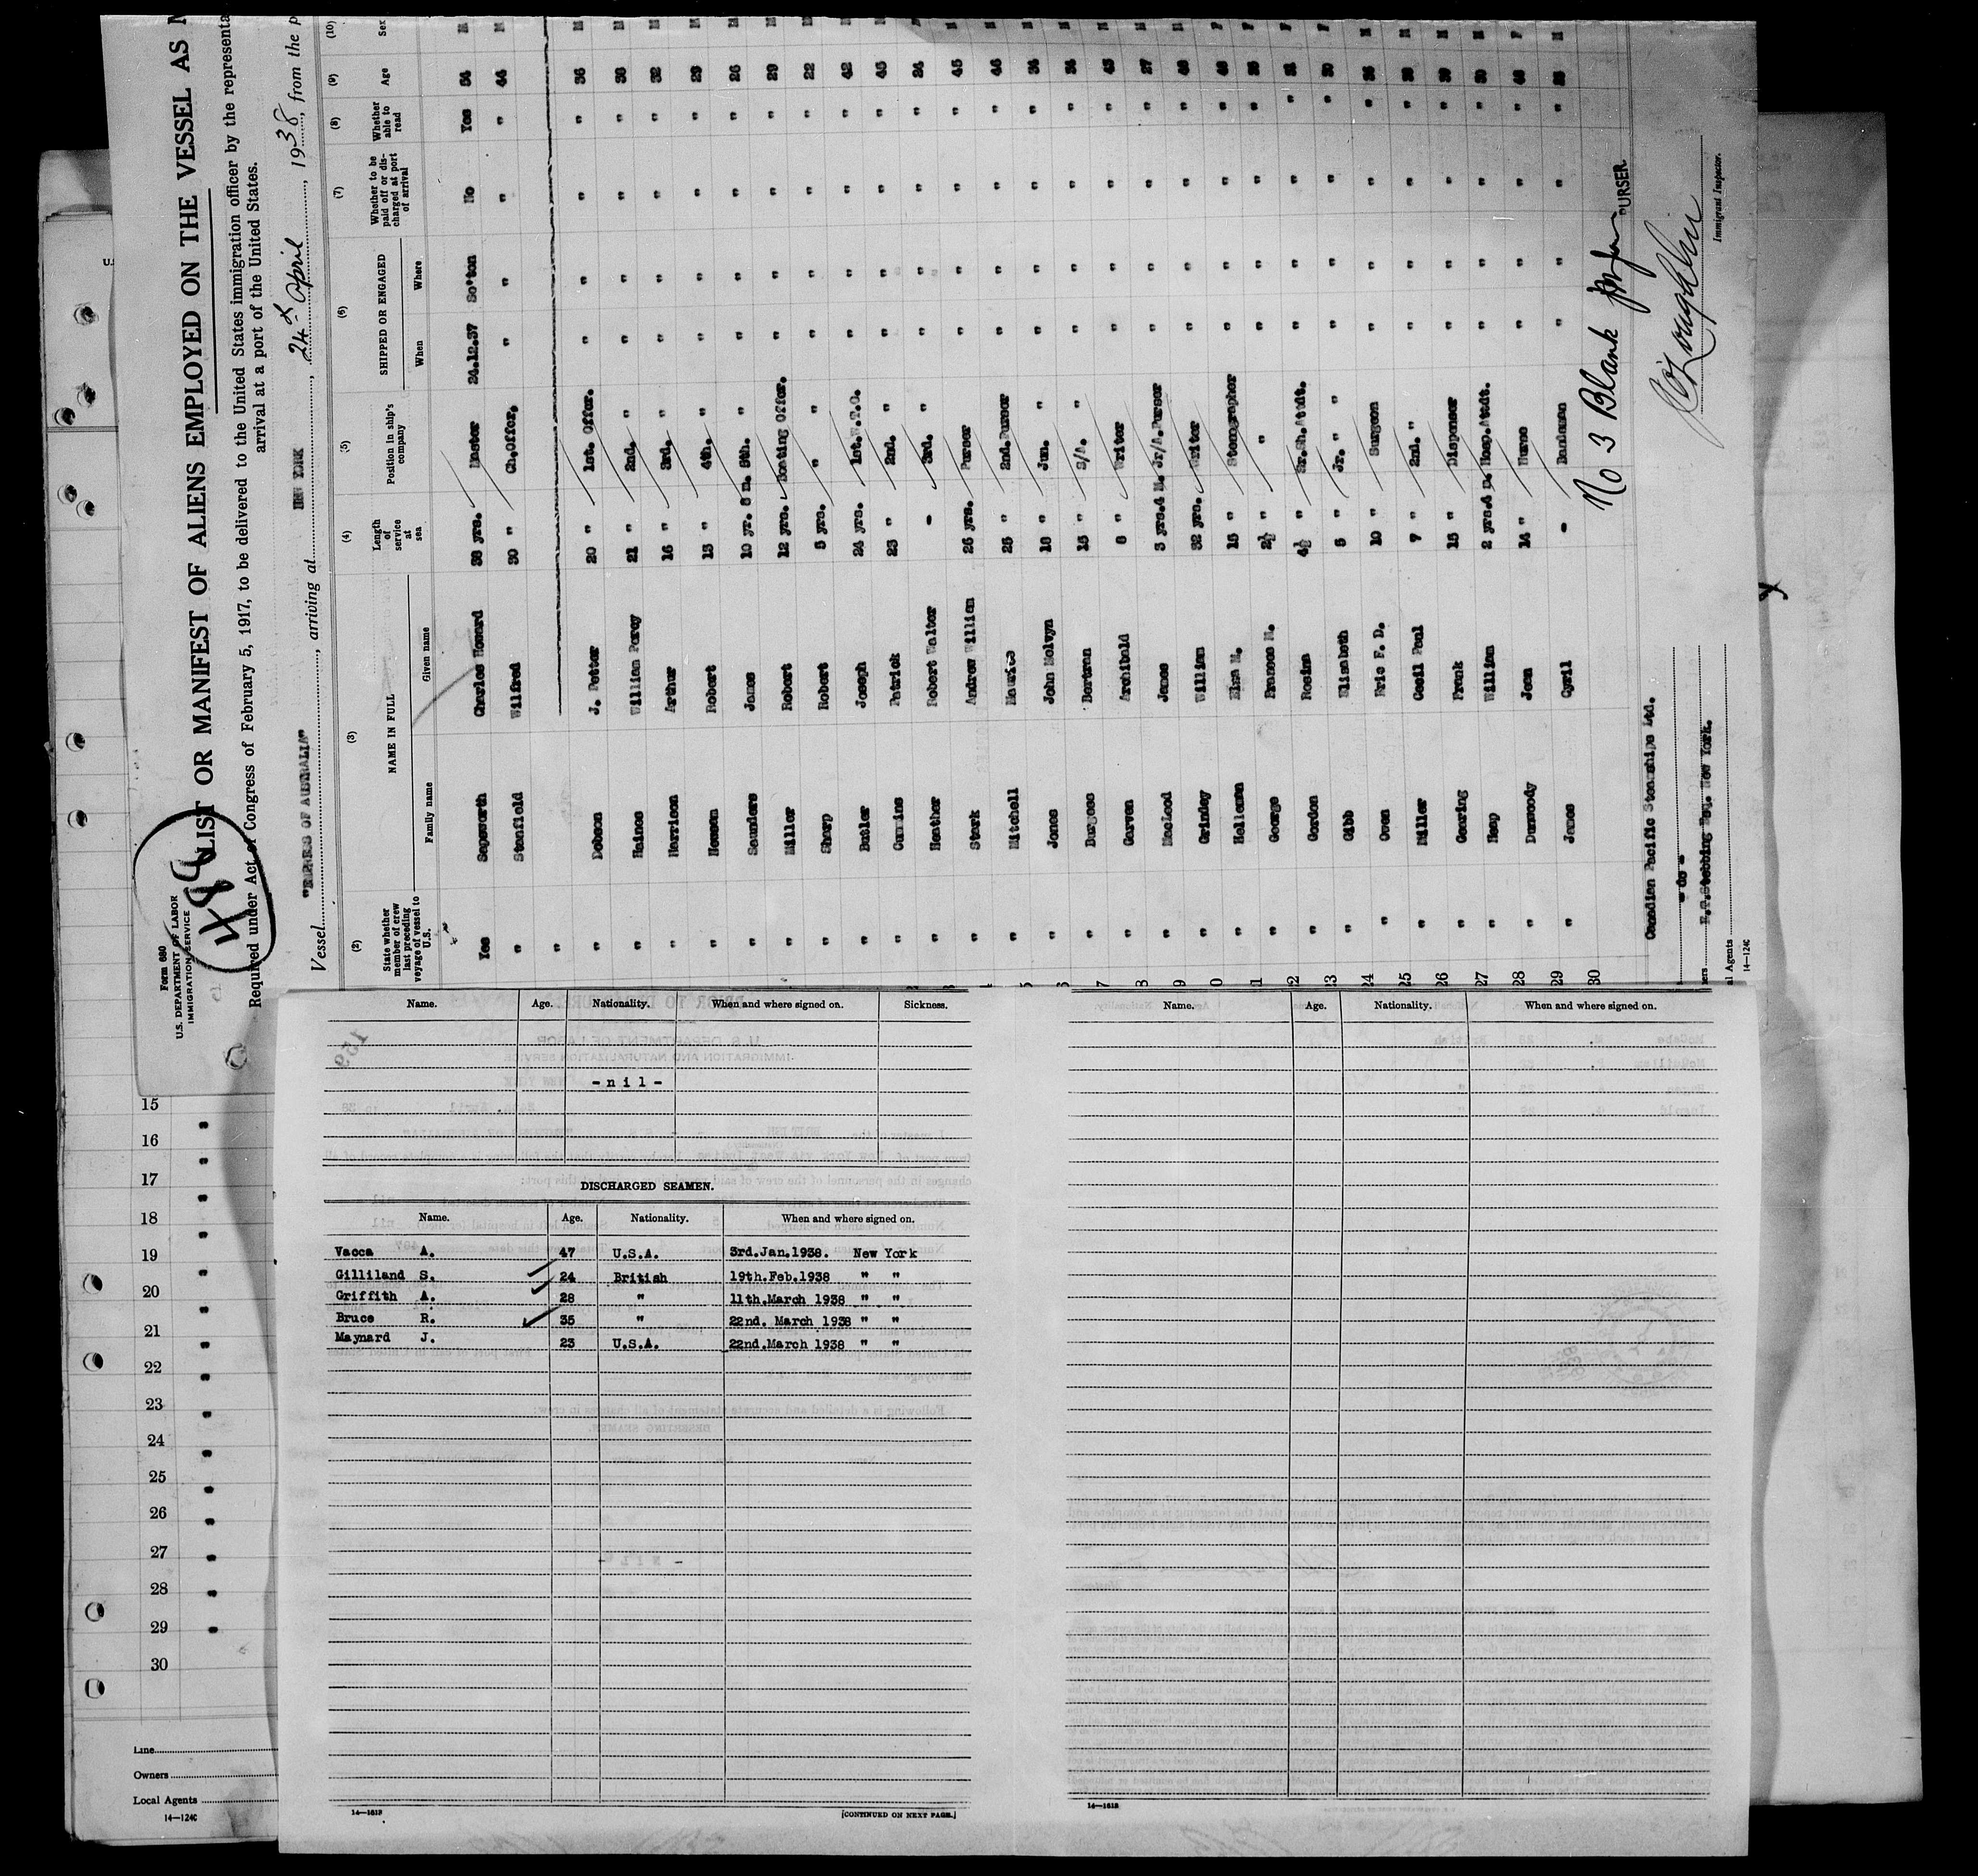 Form 680
U.S. DEPARTMENT OF LABOR
IMMIGRATION SERVICE
LIST OR MANIFEST OF ALIENS EMPLOYED ON THE VESSEL AS
Required under Act of Congress of February 5, 1917, to be delivered to the United States immigration officer by the representa
arrival at a port of the United States.
Vessel "EMPRESS OF AUSTRALIA", arriving at NEW YORK, 24th April, 1938, from the p
(2) (3) (4) (5) (6) (7) (8) (9) (10)
State whether member of crew last preceding voyage of vessel to U.S. NAME IN FULL Family name Given name Length of service at sea Position in ship's company SHIPPED OR ENGAGED When Where Whether to be paid off or discharged at port of arrival Whether able to read Age Sex
Yes Sapsworth Charles Howard 38 yrs. Master 24.12.37 So'ton No Yes 54 M
" Stanfield Wilfred 30 " Ch.Offer. " " " " 44 M
"
" Dobson J. Potter 20 " 1st. Offer. " " " " 36 M
" Haines William Percy 21 " 2nd. " " " " " 38 M
" Harrison Arthur 16 " 3rd. " " " " " 32 M
" Robert 13 " 4th. " " " " " 29 M
" Saunders James 10 yr. 8 m. 5th. " " " " " 26 M
" Miller Robert 12 yrs. Boating Offer. " " " " 29 M
" Sharp Robert 5 yrs. " " " " " 22 M
" Butler Joseph 24 yrs. 1st.W.T.O. " " " " 42 M
" Patrick 23 " 2nd. " " " " " 45 M
" Heather Robert Walter - 3rd. " " " " " 24 M
" Stark Andrew William 26 yrs. Purser " " " " 45 M
" Mitchell Maurice 25 " 2nd.Purser " " " " 46 M
" Jones John Melvyn 16 " Jun. " " " " " 34 M
" Burgess Bertram 15 " S/A. " " " " " 34 M
" Garven Archibald 6 " Writer " " " " 43 M
" MacLeod James 3 yrs.4 M. Jr/A.Purser " " " " 27 M
" Grindey William 32 yrs. Writer " " " " M
" Elna M. 15 " Stenographer " " " " F
" George Frances M. 2½ " " " " " " F
" Gordon Rosina 4½ " Sr.Sh.Attdt. " " " " F
" Gibb Elizabeth 5 " Jr. " " " " " " F
" Owen Eric F. D. 10 " Surgeon " " " " M
" Miller Cecil Paul 7 " 2nd. " " " " " M
" Gearing Frank 15 " Dispenser " " " " M
" Heap William 2 yrs.4 m. Hosp.Attdt. " " " " M
" Dunwoody Jean 14 " Nurse " " " " F
" James Cyril - Bandsman " " " " M
7
8
9
0
1
22
23
24
25
26
27
28
29
30
No 3 Blank
PURSER
Immigrant Inspector.
Canadian Pacific Steamships Ltd.
- do -
Stebbing New York.
ers
al Agents
14—124C
Name. Age. Nationality. When and where signed on. Sickness.
- n i l -
DISCHARGED SEAMEN.
Name. Age. Nationality. When and where signed on.
Vacca A. 47 U.S.A. 3rd.Jan.1938. New York
Gilliland S. 24 British 19th.Feb.1938 " "
Griffith A. 28 " 11th.March 1938 " "
Bruce R. 35 " 22nd. March 1938 " "
Maynard J. 23 U.S.A. 22nd.March 1938 " "
14—1613
[CONTINUED ON NEXT PAGE.]
Name. Age. Nationality. When and where signed on.
14—1613
15
16
17
18
19
20
21
22
23
24
25
26
27
28
29
30
Line
Owners
Local Agents
14—124C